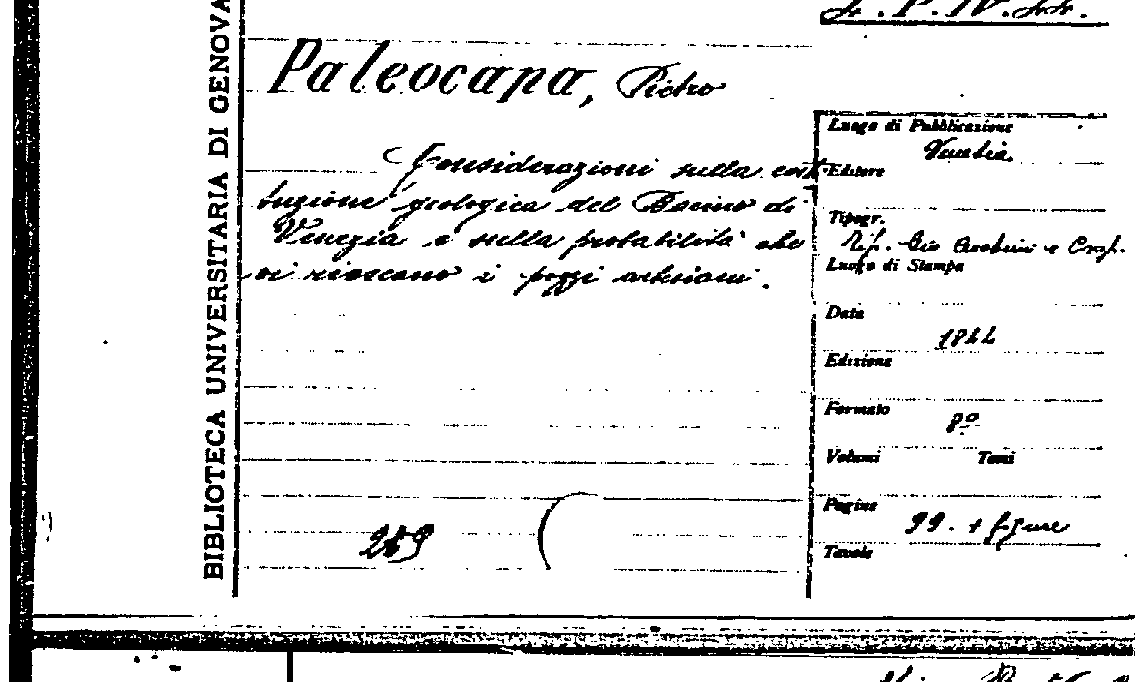 BIBLIOTECA UNIVERSITARIA DI GENOVA
Paleocapa, Pietro
Considerazioni sulla costi
tuzione geologica del Bacino di
Venezia e sulla probabilità che
vi riescano i pozzi artesiani.
269
Luogo di Pubblicazione
Venezia
Editore
Tipogr.
Tip. Gio Cecchini e Comp.
Luogo di Stampa
Data
1844
Edizione
Formato
8º
Volumi Tomi
Pagine
99. + figure
Tavole